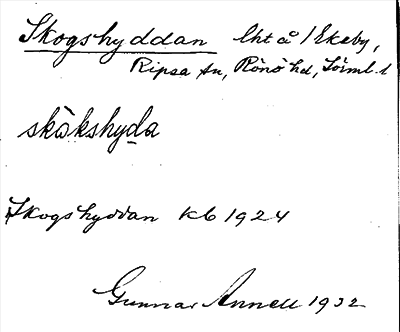 Skogshyddan lht å Ekeby,
Ripsa sn, Rönö hd, Sörml. l
skòkshyda
Skogshyddan kb 1924
Gunnar Annell 1932